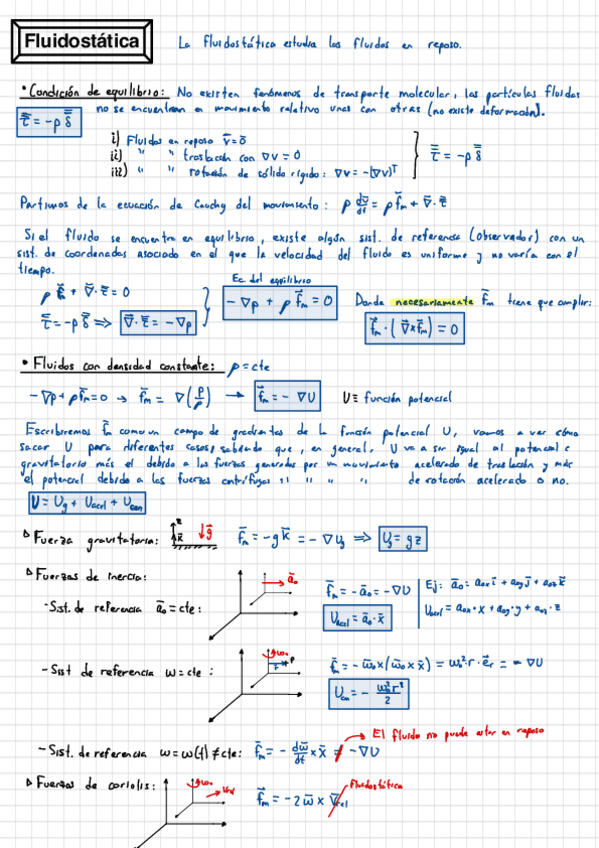 Fluidostática
La fluidostática estudia los fluidos en reposo.
• Condición de equilibrio: No existen fenómenos de transporte molecular, las partículas fluidas
no se encuentran en movimiento relativo unas con otras (no existe deformación).
τ̿ = -p δ̿
i) Fluidos en reposo v̄ = 0̄
ii) " " traslación con ∇v = 0
iii) " " rotación de sólido rígido: ∇v = -(∇v)ᵀ
τ̿ = -p δ̿
Partimos de la ecuación de Cauchy del movimiento: ρ dv̄/dt = ρ f̄m + ∇̄·τ̿
Si el fluido se encuentra en equilibrio, existe algún sist. de referencia (observador) con un
sist. de coordenadas asociado en el que la velocidad del fluido es uniforme y no varía con el
tiempo.
Ec. del equilibrio
ρ f̄m + ∇̄·τ̿ = 0
-∇p + ρ f̄m = 0
Donde necesariamente f̄m tiene que cumplir:
τ̿ = -p δ̿ ⇒ ∇̄·τ̿ = -∇p
f̄m · (∇̄×f̄m) = 0
• Fluidos con densidad constante: ρ = cte
-∇p + ρ f̄m = 0 → f̄m = ∇(p/ρ) → f̄m = -∇U U ≡ función potencial
Escribiremos f̄m como un campo de gradientes de la función potencial U, vamos a ver cómo
sacar U para diferentes casos, sabiendo que, en general, U va a ser igual al potencial
gravitatorio más el debido a las fuerzas generadas por un movimiento acelerado de traslación y más
el potencial debido a las fuerzas centrífugas " " " " de rotación acelerado o no.
U = Ug + Uacel + Ucen
▷ Fuerza gravitatoria: z k̄ ḡ f̄m = -g k̄ = -∇Ug ⇒ Ug = gz
▷ Fuerzas de inercia:
- Sist. de referencia ā₀ = cte: ā₀ f̄m = -ā₀ = -∇U
Uacel = ā₀·x̄
Ej: ā₀ = a₀ₓ ī + a₀y j̄ + a₀z k̄
Uacel = a₀ₓ·x + a₀y·y + a₀z·z
- Sist de referencia ω = cte: ω₀ r P f̄m = -ω̄₀×(ω̄₀×x̄) = ω₀²·r·ēr = -∇U
Ucen = - ω₀² r² / 2
El fluido no puede estar en reposo
- Sist. de referencia ω = ω(t) ≠ cte: f̄m = - dω̄/dt × x̄ ≠ -∇U
▷ Fuerzas de coriolis: ω₀ f̄m = -2 ω̄ × v̄rel
fluidostática